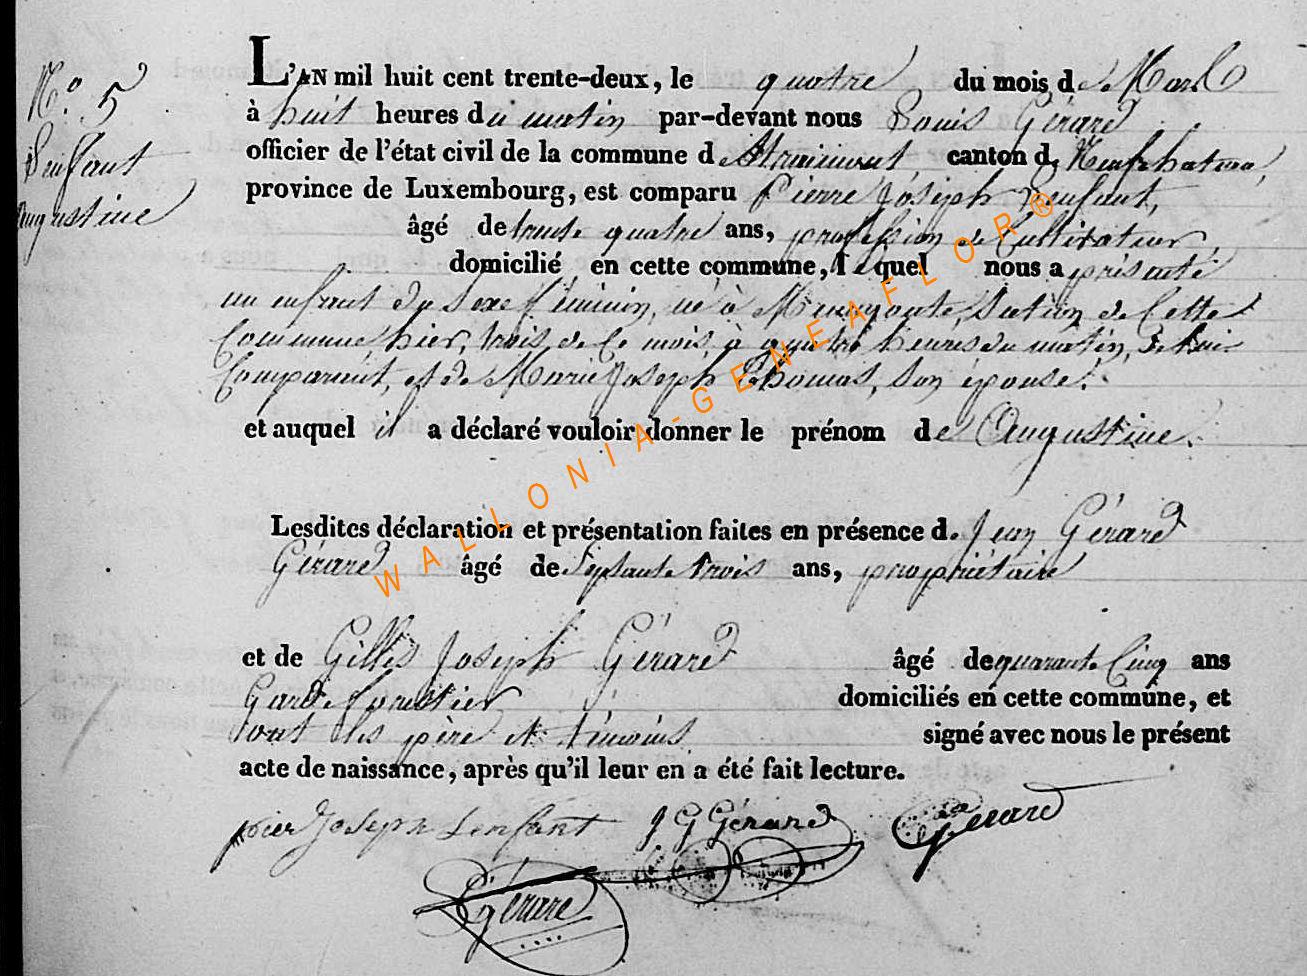 N.o 5
Lenfant
Augustine
L'AN mil huit cent trente-deux, le quatre du mois de Mars
à huit heures du matin par-devant nous Louis Gérard
officier de l'état civil de la commune d canton de Neufchateau,
province de Luxembourg, est comparu Pierre Joseph Lenfant,
âgé de trente quatre ans, profession de Cultivateur,
domicilié en cette commune, lequel nous a présenté
un enfant du sexe féminin, né à section de cette
Commune hier, trois de ce mois à quatre heures du matin, de lui
Comparant, et de Marie Joseph Thomas, son épouse.
et auquel il a déclaré vouloir donner le prénom de Augustine.
Lesdites déclaration et présentation faites en présence de Jean Gérard
Gérard âgé de septante trois ans, propriétaire
et de Gilles Joseph Gérard âgé de quarante cinq ans
Garde forestier domiciliés en cette commune, et
sont les père et témoins signé avec nous le présent
acte de naissance, après qu'il leur en a été fait lecture.
pier Joseph Lenfant J G Gérard Gerard
L Gérard
WALLONIA-GENEAFLOR®